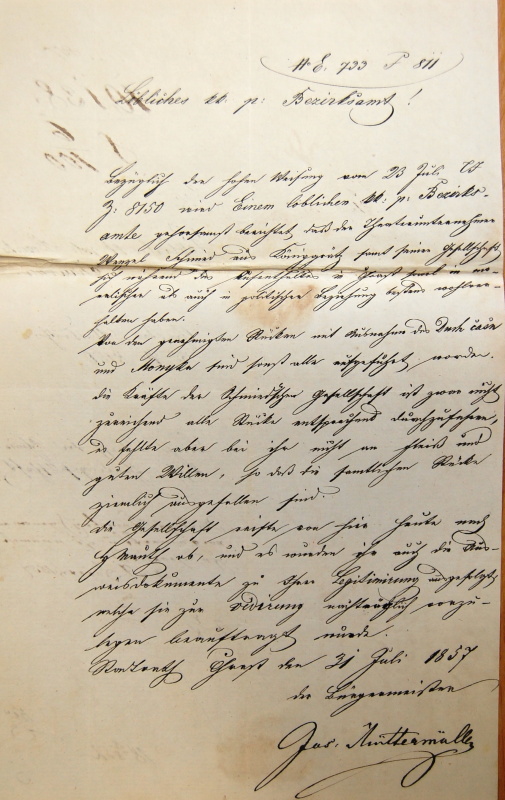 N E: 733 P 811
Löbliches kk. p: Bezirksamt!
Bezüglich der hohen Weisung vom 23 Juli
Z: 8150 wird Einem löblichen kk: p: Bezirks-
amte gehorsamst berichtet, daß der Theaterunternehmer
Wenzel Schmied aus Königgrätz samt seiner Gesellschaft
sich während des Aufenthaltes in Chrast sowol in mo-
ralischer als auch in politischer Beziehung bestens wohlver-
halten haben.
Von den genehmigten Stücken mit Ausnahme des
und sind sonst alle aufgeführt worden.
die Kräfte der Schmiedschen Gesellschaft ist zwar nicht
zureichend alle Stücke entsprechend durchzuführen,
es fehlte aber bei ihr nicht an Fleiß und
guten Willen, so daß die samtlichen Stücke
ziemlich ausgefallen sind.
Die Gesellschaft reiste von hier heute nach
Mauth ab, und es wurden ihr auch die Aus-
weisdokumente zu ihrer Legitimirung ausgefolgt,
welche sie zur Vidirung nachträglich vorzu-
legen beauftragt wurde.
Stadtrath Chrast den 31 Juli 1857
der Bürgermeister
Jos.